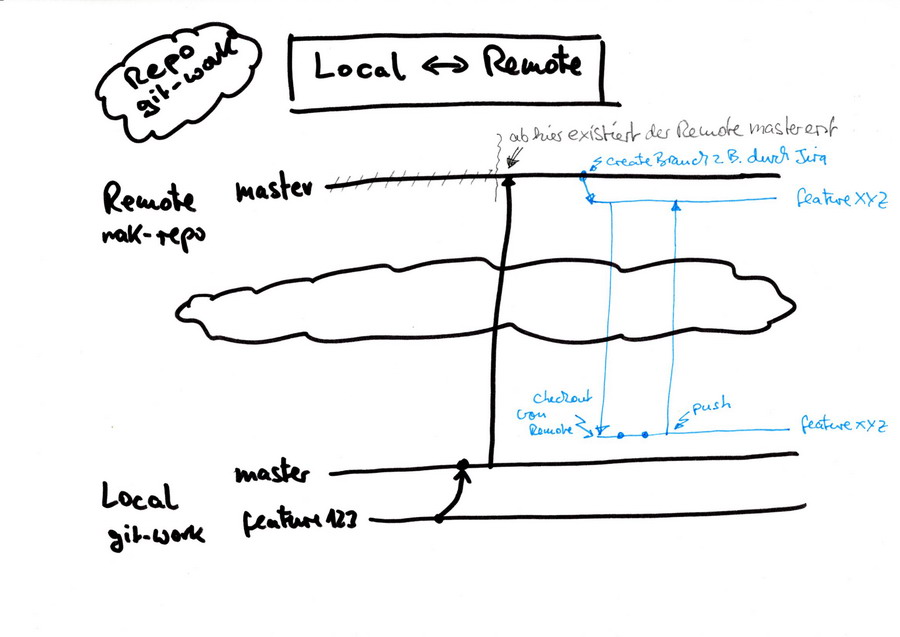 Repo
git-work
Local ↔ Remote
ab hier existiert der Remote master erst
create Branch z.B. durch Jira
Remote
nak-repo
master
feature XYZ
checkout
von
Remote
push
feature XYZ
master
Local
git-work
feature 123